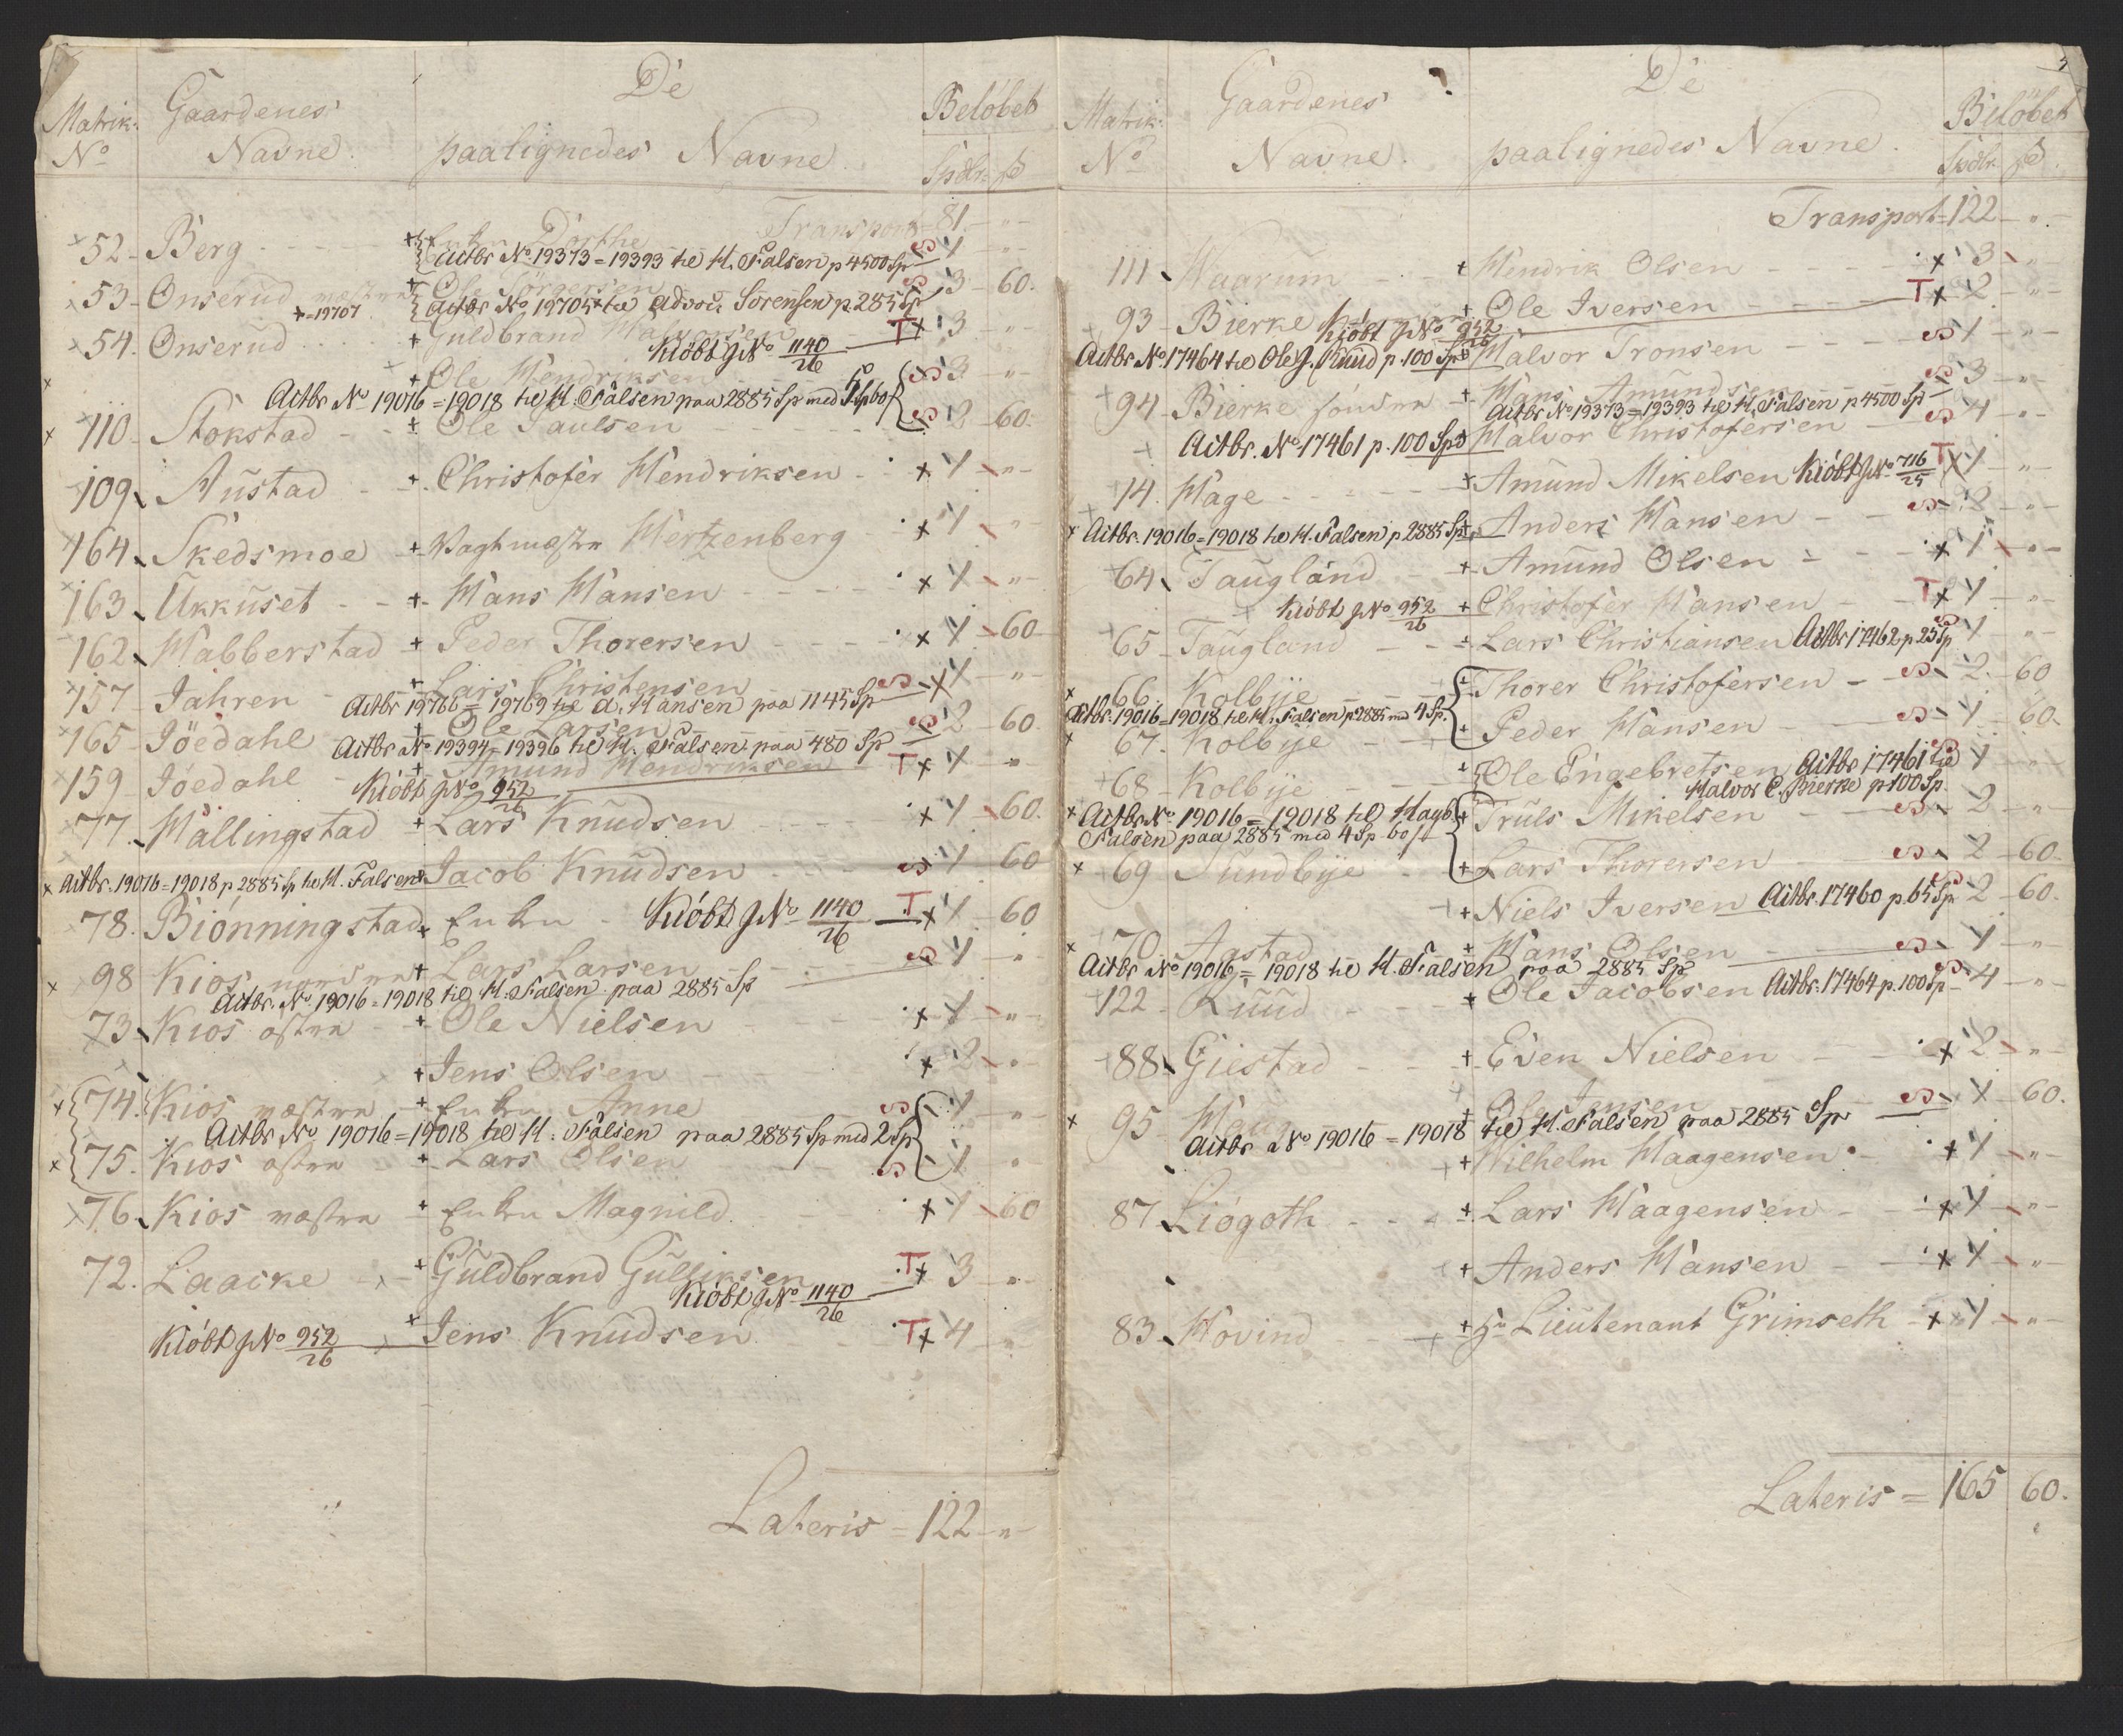 Matrik: Gaardenes De Beløbet
No Navne. paalignedes Navne. Spdlr. ß
Transport = 81 - " -
52 - Berg - Enken Dorthe 1 - " -
Actbr No 19373 = 19393 til H. Falsen p 4500 Sp
53 - Onserud Ole Jörgensen 3 - 60.
= 19707 Actbr No 19705 til Advoc. Sorensen p. 285 Sp
54. Onserud Guldbrand Halvorsen T 3 - " -
Kiöbt J No 1140/26
Ole Hendriksen 3 - " -
Actbr No 19016 = 19018 til H. Falsen paa 2885 Sp med
110 - Stokstad - Ole Paulsen 2 - 60.
109 Austad - Christofer Hendriksen 1 - " -
164 Skedsmoe - Vagtmester Hertzenberg 1 - " -
163 Ukkuset - Hans Hansen 1 - " -
162 Habberstad Peder Thorersen 1 - 60
157 Jahren - Lars Christensen 1 - " -
Actbr 19766 = 19769 til A. Hansen paa 1145 Sp
165 - Jöedahl Ole Larsen 2 - 60.
Actbr No 19394 = 19396 til H. Falsen paa 480 Sp
159 - Jöedahl - Amund Hendriksen T 1 - " -
Kiöbt J No 952/26
77. Hallingstad Lars Knudsen 1 - 60.
Jacob Knudsen 1 60
Actbr. 19016 = 19018 p. 2885 Sp til H. Falsen
78. Biönningstad Enken - Kiöbt J No 1140/26 T 1 - 60
98 Kios nordre Lars Larsen 1 - " -
Actbr. No 19016 = 19018 til H. Falsen paa 2885 Sp
73 Kios østre - Ole Nielsen 1 - " -
Jens Olsen 2 - " -
74. Kios vestre - Enken Anne 1 - " -
Actbr No 19016 = 19018 til H. Falsen paa 2885 Sp med 2 Sp
75. Kios østre - Lars Olsen 1 - " -
76. Kios vestre - Enken Magnild 1 - 60
72. Laacke - Guldbrand Gulliksen T 3 - " -
Kiöbt J No 1140/26
Jens Knudsen T 4 - " -
Kiöbt J No 952/26
Lateris = 122 - " -
Matrik: Gaardenes De Beløbet
No Navne. paalignedes Navne. Spdlr. ß.
Transport = 122 - " -
111 Haarum Hendrik Olsen 3 - " -
93 - Bierke Ole Iversen T 2 - " -
Kiöbt J No 952/26
Halvor Tronsen 1 - " -
Actbr No 17464 til Ole J. Ruud p. 100 Spd
94 - Bierke söndre Hans Amundsen 3 - " -
Actbr No 19373 = 19393 til H. Falsen p 4500 Sp
Halvor Christofersen 4 - " -
Actbr. No 17461 p. 100 Spd
14. Hage Amund Mikelsen Kiöbt J No 716/25 T 1 - " -
Anders Hansen 2 - " -
Actbr. 19016 = 19018 til H. Falsen p 2885 Sp
64. Taugland - Amund Olsen 1 - " -
Christofer Hansen T 1 - " -
Kiöbt J No 952/26
65 - Taugland - Lars Christiansen Actbr 17462 p 25 Sp 1 - " -
66. Kolbye Thorer Christofersen 2 - 60
Actbr. 19016 = 19018 til H. Falsen p 2885 med 4 Sp.
67. Kolbye - Peder Hansen 1 60.
68 - Kolbye Ole Engebretsen Actbr 17461 til 1 - " -
Halvor C. Bierke p 100 Sp.
Truls Mikelsen 2 - " -
Actbr No 19016 = 19018 til Hagb.
Falsen paa 2885 med 4 Sp 60 ß
69 Sundbye Lars Thorersen 2 - 60.
Niels Iversen Actbr. 17460 p. 65 Sp 2 - 60.
70 - Agstad Hans Olsen 1 - " -
Actbr No 19016 = 19018 til H. Falsen paa 2885 Sp
122 - Ruud - Ole Jacobsen Actbr. 17464 p. 100 Sp 4 - " -
88 Giestad - Even Nielsen 2 - " -
95 Ole Jensen 1 - 60.
Actbr No 19016 = 19018 til H. Falsen paa 2885 Sp
Wilhelm Haagensen 1 - " -
87 Liögoth - Lars Haagensen 1 - " -
Anders Hansen 1 - " -
83 - Hovind - Hr Lieutenant Grimseth 1 - " -
Lateris = 165 60.